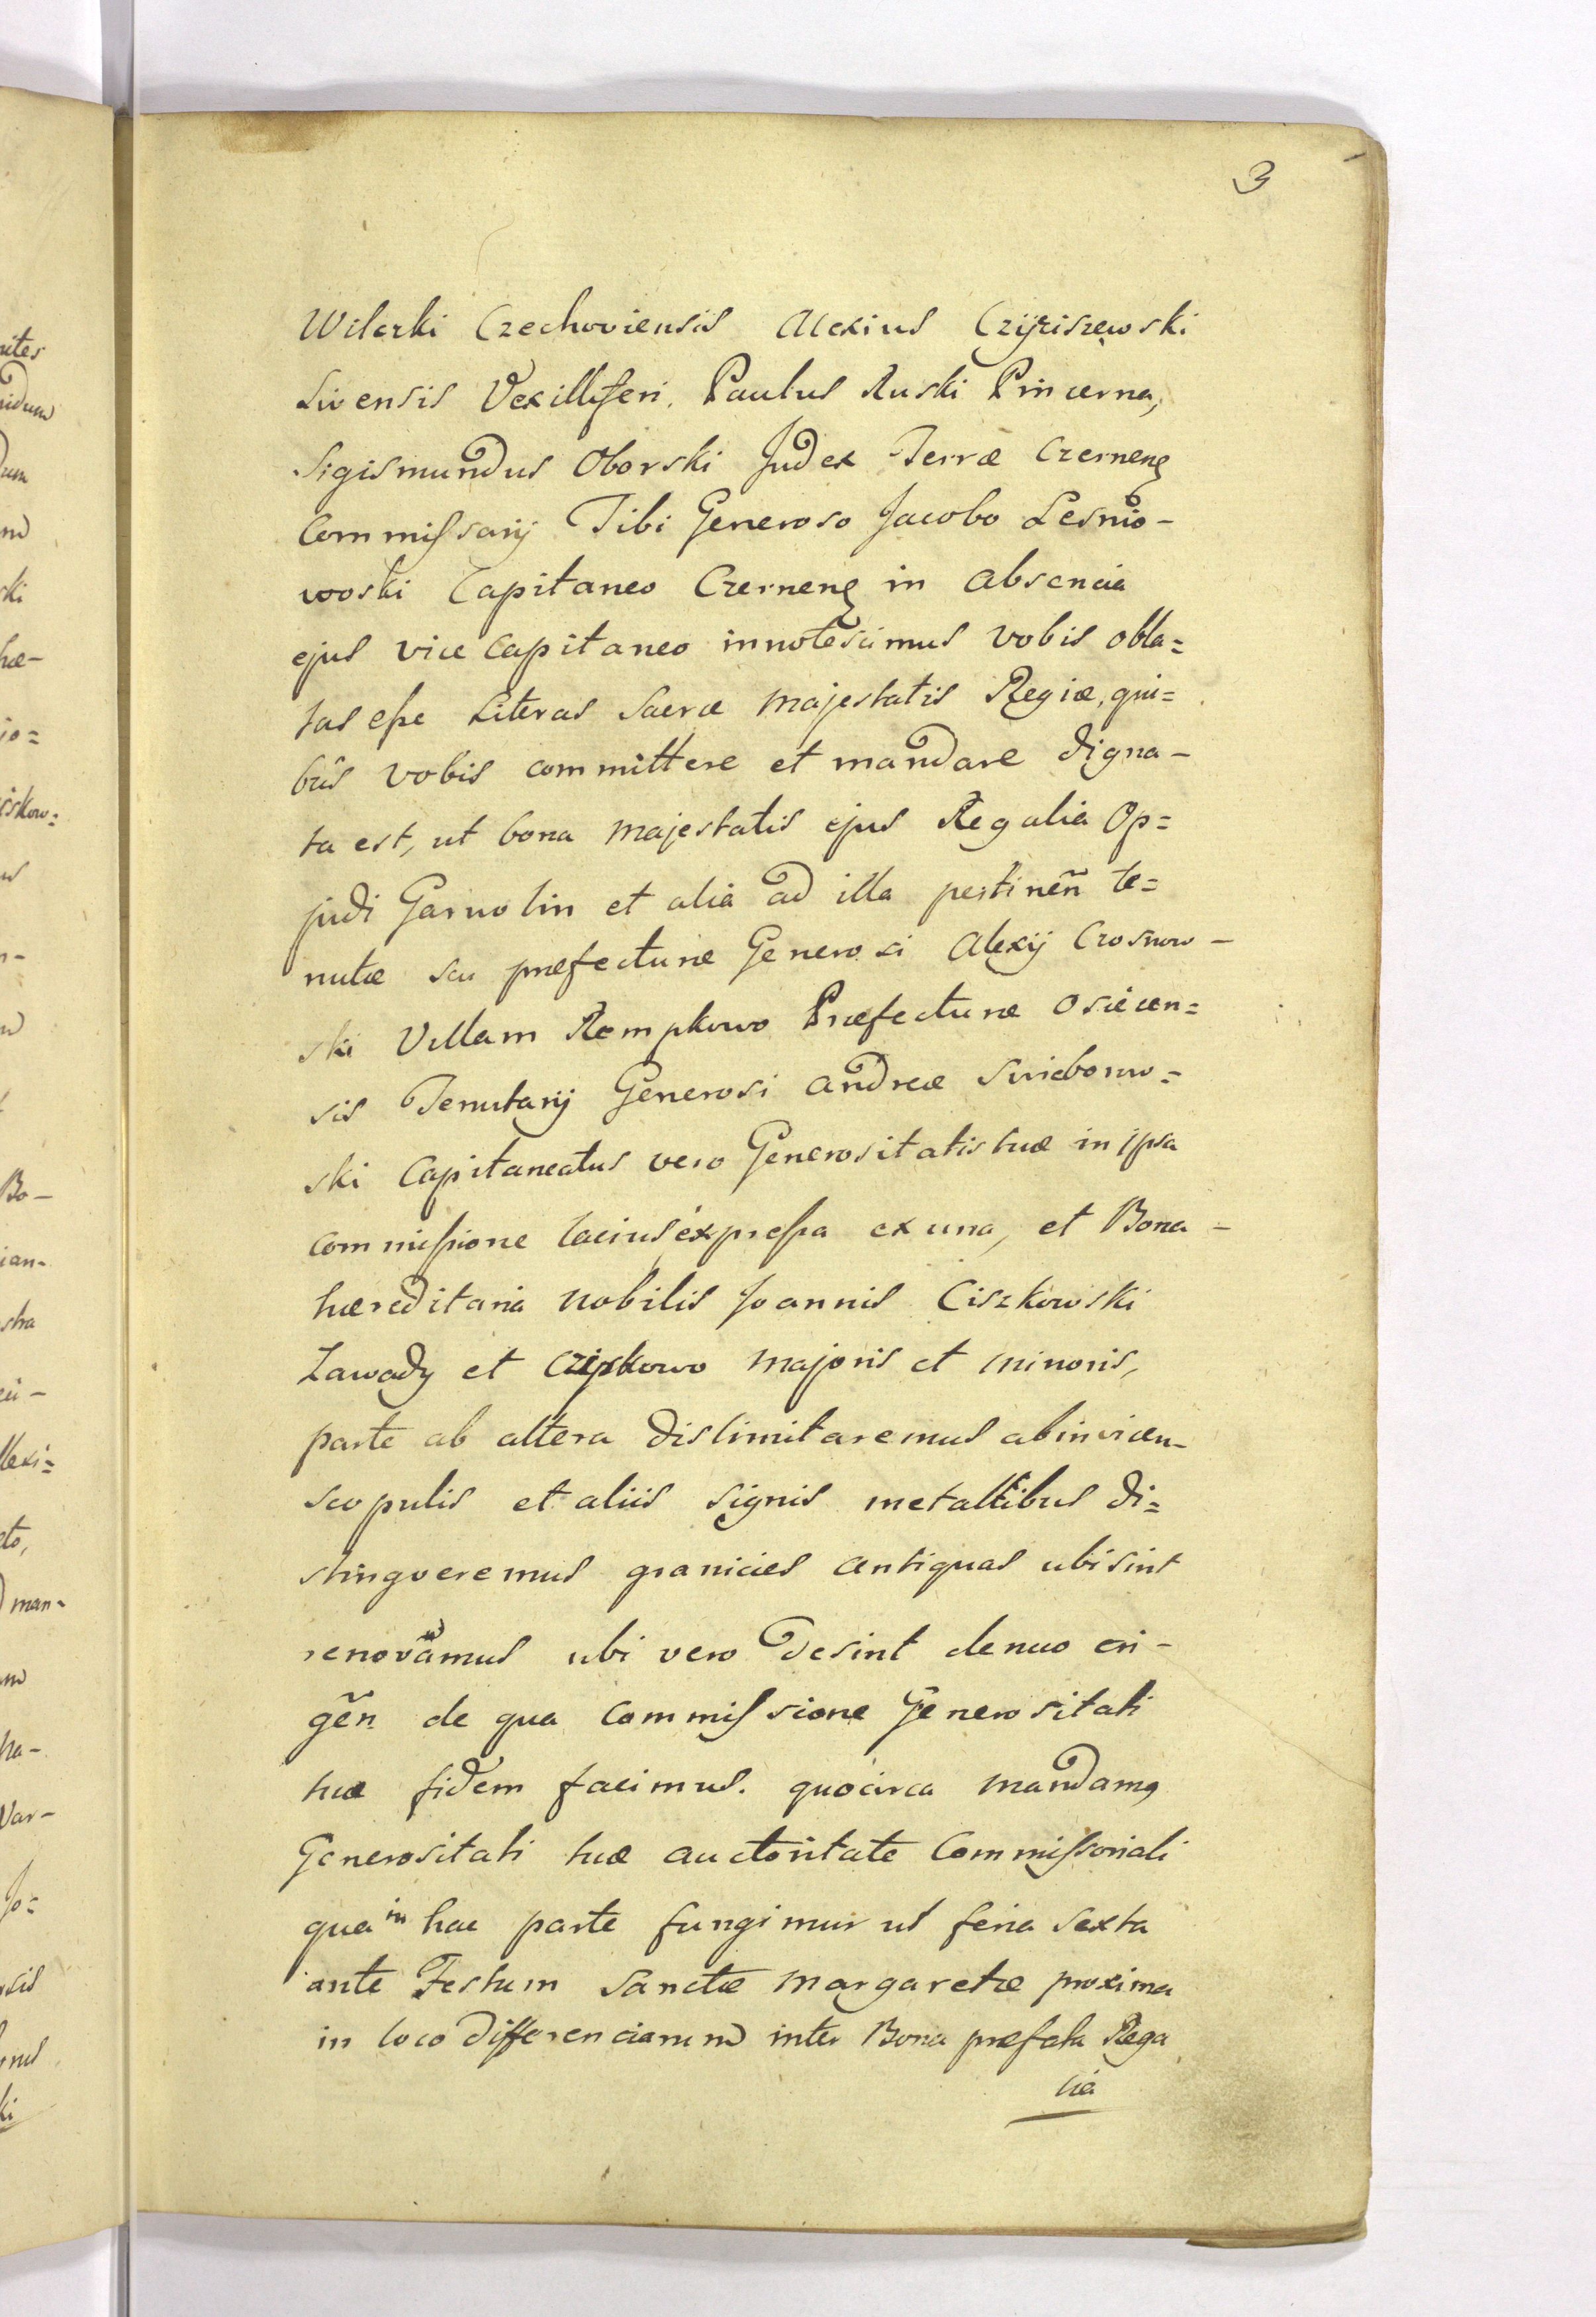 3
Wilczki Czechoviensis Alexius Czyżiszewski
Livensis Vexilliferi, Paulus Ruski Pincerna,
Sigismundus Oborski Judex Terræ Czerneng
Commissarij Tibi Generoso Jacobo Lesnio-
woski Capitaneo Czerneng in absencia
ejus vice capitaneo innotescimus vobis obla=
tas esse Literas Sacræ Majestatis Regiæ, qui=
bus vobis committere et mandare digna-
ta est, ut bona Majestatis ejus Regalia Op=
pidi Garwolin et alia ad illa pertineñ te=
nutæ seu præfecturæ Generosi Alexij Crosnow-
ski Villam Rempkowo Præfecturæ Osiecen=
sis Tenutarij Generosi Andreæ Swiebonow=
ski Capitaneatus vero Generositatis tuæ in ipsa
commissione lacius expressa ex una, et Bona-
hæreditaria Nobilis Joannis Ciszkowski
Zawady et Czipskowo majoris et minoris,
parte ab altera dislimitaremus abinvicen-
scopulis et aliis signis metallibus di=
stingveremus granicies antiquas ubi sint
renovamus ubi vero desint denuo eri-
geñ de qua Commissione Generositati
tuæ fidem facimus. quocirca mandamg
Generositati tuæ auctoritate Commissoriali
qua in hac parte fungimur ut feria sexta
ante Festum Sanctæ Margaretæ proxima
in loco differenciarum inter Bona præfata Rega
lia